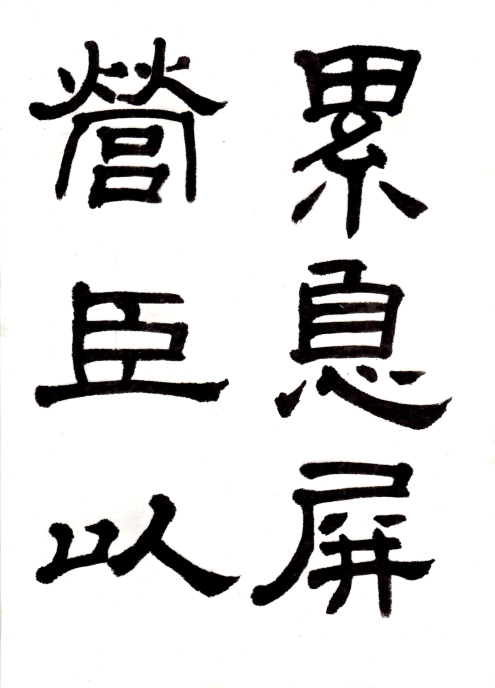 累息屏
營臣以